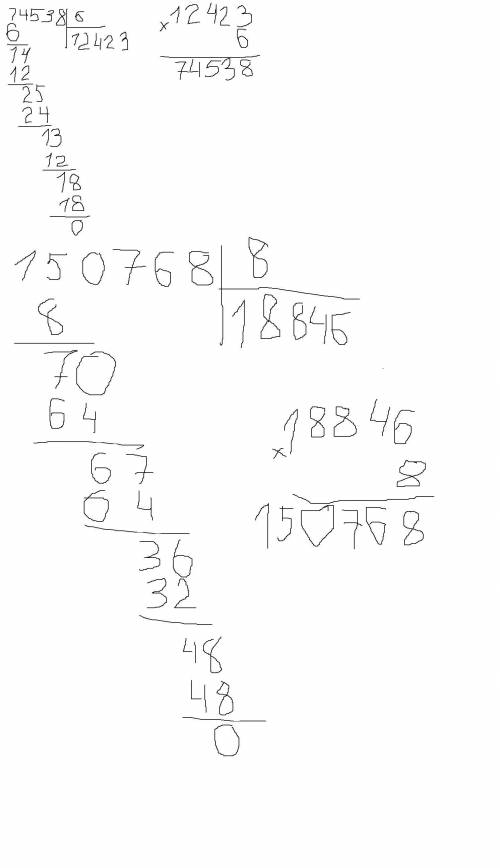 74538 6
6 12423
14
12
25
24
13
12
18
18
0
× 12423
6
74538
150768 8
8 18846
70
64
67
64
36
32
48
48
0
× 18846
8
150768